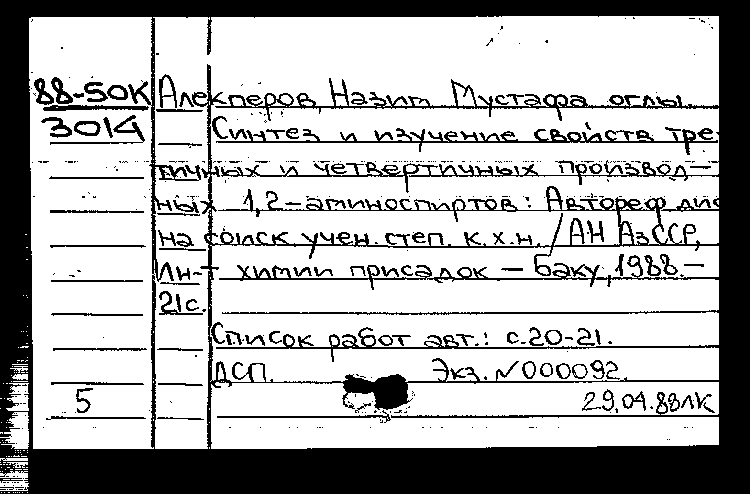 88-50К Алекперов, Назим Мустафа оглы.
3014 Синтез и изучение свойств тре
тичных и четвертичных производ-
ных 1,2-аминоспиртов: Автореф дис
на соиск. учен. степ. к.х.н. / АН АзССР,
Ин-т химии присадок - Баку, 1988.-
21с.
Список работ авт.: с.20-21.
ДСП. Экз. №000092.
5 29.04.88ЛК